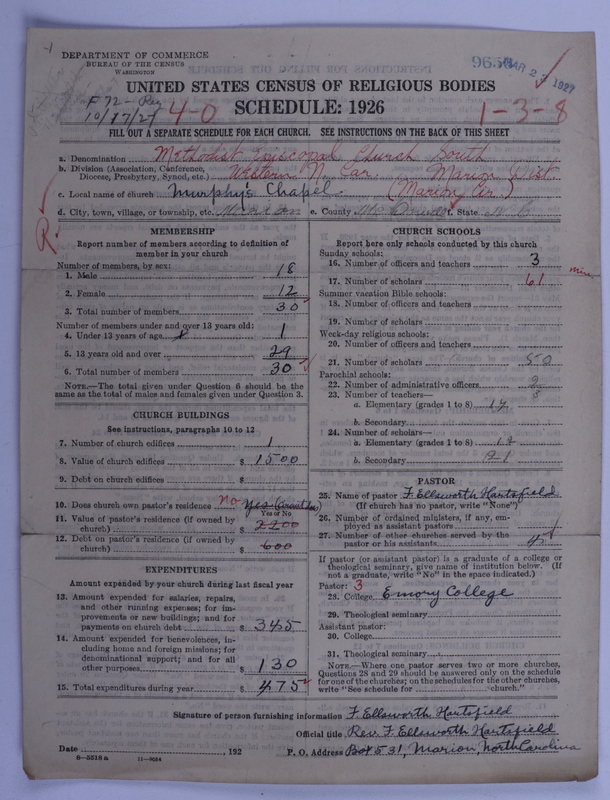 DEPARTMENT OF COMMERCE
BUREAU OF THE CENSUS
WASHINGTON
MAR 2 1927
UNITED STATES CENSUS OF RELIGIOUS BODIES
SCHEDULE: 1926
4-0
1-3-8
FILL OUT A SEPARATE SCHEDULE FOR EACH CHURCH. SEE INSTRUCTIONS ON THE BACK OF THIS SHEET
a. Denomination Methodist Episcopal Church South
b. Division (Association, Conference, Diocese, Presbytery, Synod, etc.) Western N. Car. Marion Dist.
c. Local name of church Murphy's Chapel (Marion Cir.)
d. City, town, village, or township, etc. Marion e. County McDowell f. State N C
R
MEMBERSHIP
Report number of members according to definition of member in your church
Number of members, by sex:
1. Male 18
2. Female 12
3. Total number of members 30
Number of members under and over 13 years old:
4. Under 13 years of age 1
5. 13 years old and over 29
6. Total number of members 30
NOTE.—The total given under Question 6 should be the same as the total of males and females given under Question 3.
CHURCH BUILDINGS
See instructions, paragraphs 10 to 12
7. Number of church edifices 1
8. Value of church edifices $ 1500
9. Debt on church edifices $
10. Does church own pastor's residence no Yes
Yes or No
11. Value of pastor's residence (if owned by church) $ 2200
12. Debt on pastor's residence (if owned by church) $ 600
EXPENDITURES
Amount expended by your church during last fiscal year
13. Amount expended for salaries, repairs, and other running expenses; for improvements or new buildings; and for payments on church debt $ 345
14. Amount expended for benevolences, including home and foreign missions; for denominational support; and for all other purposes $ 130
15. Total expenditures during year $ 475
CHURCH SCHOOLS
Report here only schools conducted by this church
Sunday schools:
16. Number of officers and teachers 3
17. Number of scholars 61
Summer vacation Bible schools:
18. Number of officers and teachers
19. Number of scholars
Week-day religious schools:
20. Number of officers and teachers
21. Number of scholars 50
Parochial schools:
22. Number of administrative officers
23. Number of teachers—
a. Elementary (grades 1 to 8)
b. Secondary
24. Number of scholars—
a. Elementary (grades 1 to 8)
b. Secondary
PASTOR
25. Name of pastor F. Ellsworth Hartsfield
(If church has no pastor, write "None")
26. Number of ordained ministers, if any, employed as assistant pastors
27. Number of other churches served by the pastor or his assistants
If pastor (or assistant pastor) is a graduate of a college or theological seminary, give name of institution below. (If not a graduate, write "No" in the space indicated.)
Pastor: 3
28. College Emory College
29. Theological seminary
Assistant pastor:
30. College
31. Theological seminary
NOTE.—Where one pastor serves two or more churches, Questions 28 and 29 should be answered only on the schedule for one of the churches; on the schedules for the other churches, write "See schedule for church."
Signature of person furnishing information F. Ellsworth Hartsfield
Official title Rev. F. Ellsworth Hartsfield
Date , 192 P. O. Address Box 531, Marion, North Carolina
8—5518a 11—9034